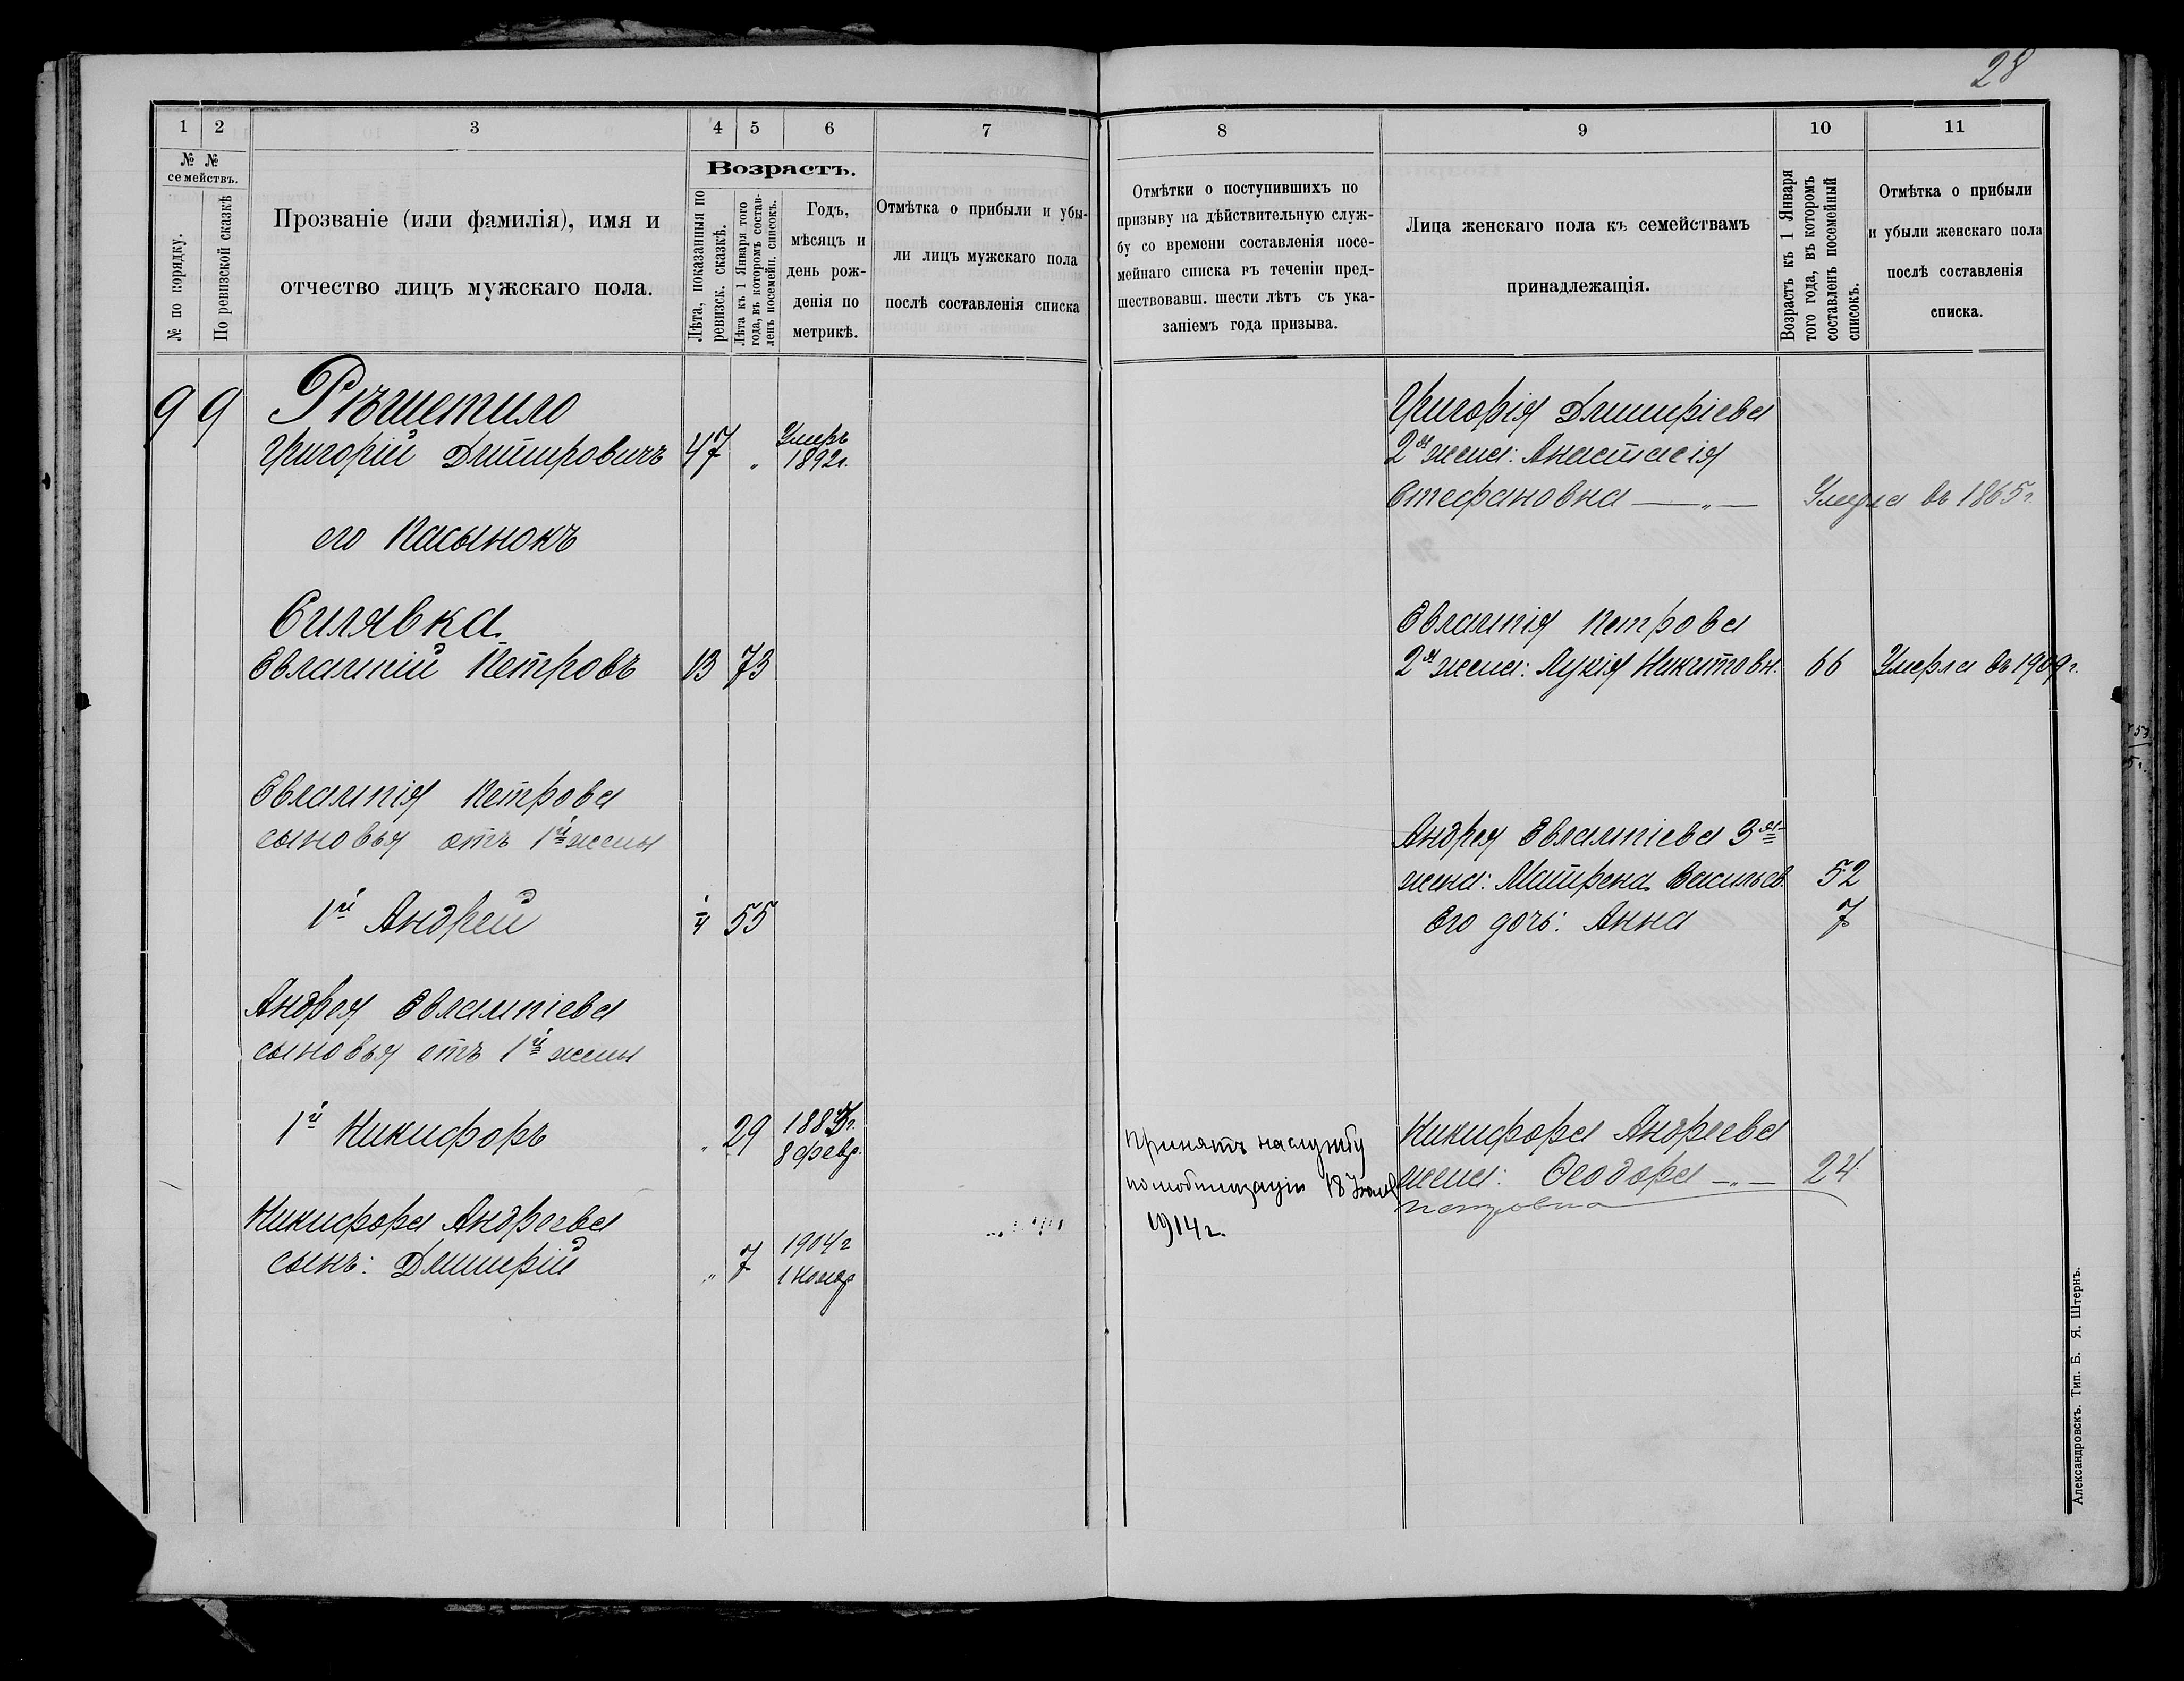 28
1 2 3 4 5 6 7
№ № семействъ.
№ по порядку.
По ревизской сказкѣ
Прозваніе (или фамилія), имя и
отчество лицъ мужскаго пола.
Возрастъ.
Лѣта, показанныя по
ревизск. сказкѣ.
Лѣта къ 1 Января того
года, въ которомъ состав-
ленъ посемейн. списокъ.
Годъ,
мѣсяцъ и
день рож-
денія по
метрикѣ.
Отмѣтка о прибыли и убы-
ли лицъ мужскаго пола
послѣ составленія списка
9 9 Рѣшетило
Григорій Дмитровичъ 47 „ Умеръ
1892г.
его Пасынокъ
Силявка
Евлампій Петровъ 13 73
Евлампія Петрова
сыновья отъ 1й жены
1й Андрей 55
Андрея Евлампіева
сыновья отъ 1й жены
1й Никифоръ „ 29
8 февр.
Никифора Андреева
сынъ: Дмитрій „ 7 1904г
1 Ноябр
8 9 10 11
Отмѣтки о поступившихъ по
призыву на дѣйствительную служ-
бу со времени составленія посе-
мейнаго списка въ теченіи пред-
шествовавш. шести лѣтъ съ ука-
заніемъ года призыва.
Лица женскаго пола къ семействамъ
принадлежащія.
Возрастъ къ 1 Января
того года, въ которомъ
составленъ посемейный
списокъ.
Отмѣтка о прибыли
и убыли женскаго пола
послѣ составленія
списка.
Григорія Дмитріева
2я жена: Анастасія
Стефановна — „ — Умерла въ 1865г.
Евлампія Петрова
2я жена: Лукія Никитовн. 66 Умерла въ 1909г.
Андрея Евлампіева 3я
жена: Матрена Васильев. 52
Его дочь: Анна 7
Принятъ на службу
по мобилизаціи 18 Іюля
1914г.
Никифора Андреева
жена: Ѳеодора — „ — 24
Петровна
Александровскъ. Тип. Б. Я. Штернъ.